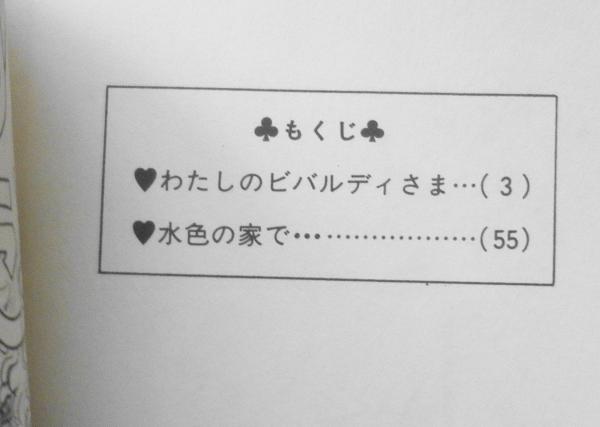 ♣もくじ♣
♥わたしのビバルディさま…(3)
♥水色の家で…………………(55)